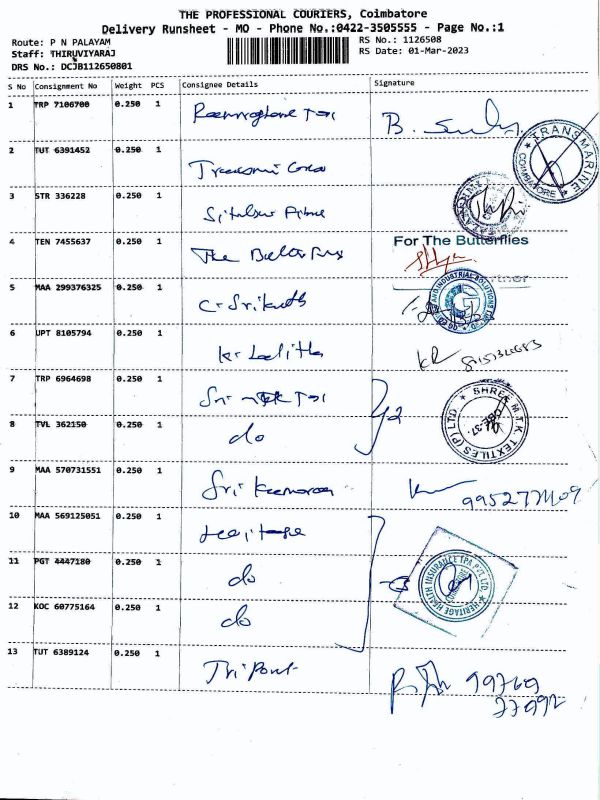 THE PROFESSIONAL COURIERS, Coimbatore
Delivery Runsheet - MO - Phone No.:0422-3505555 - Page No.:1
Route: P N PALAYAM
RS No.: 1126508
Staff: THIRUVIYARAJ
RS Date: 01-Mar-2023
DRS No.: DCJB112650801
S No Consignment No Weight PCS Consignee Details Signature
1 TRP 7106700 0.250 1
B.
TRANSMARINE
COIMBATORE
2 TUT 6391452 0.250 1
3 STR 336228 0.250 1
4 TEN 7455637 0.250 1 The
For The Butterflies
5 MAA 299376325 0.250 1 C. Srikanth
AND INDUSTRIAL SOLUTIONS
6 UPT 8105794 0.250 1 K. Lalitha
7 TRP 6964698 0.250 1 Sri MTK Tex
SHREE M.T.K. TEXTILES (P) LTD
CBE-37.
8 TVL 362150 0.250 1 do
9 MAA 570731551 0.250 1 Sri Kumaran
10 MAA 569125051 0.250 1 Heritage
11 PGT 4447180 0.250 1 do
HERITAGE HEALTH INSURANCE TPA PVT. LTD.
12 KOC 60775164 0.250 1 do
13 TUT 6389124 0.250 1
99769
77992